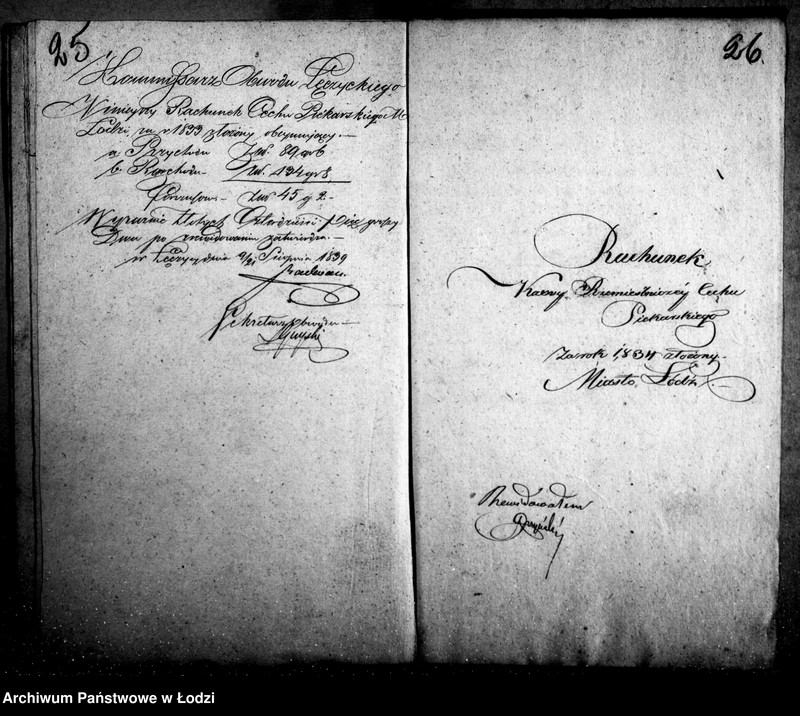 25
Kommissarz Obwodu Łęczyckiego
Niniejszy Rachunek Cechu Piekarskiego M.
Łodzi za r 1833 złożony obejmujący.—
a Przychodu Złt. 89 gr 6
b Rozchodu Złt. 134 gr 8
złt 45 g 2.
Wyraźnie złotych Czterdzieści pięć groszy
Dwa po zrewidowaniu zatwierdza.—
w Łęczycy dnia Sierpnia 1839
Sekretarz Obwodu
26.
Rachunek
Kassy Rzemieślniczéy Cechu
Piekarskiego
za rok 1834 złożony.
Miasto Łódź
Rewidowałem
Archiwum Państwowe w Łodzi